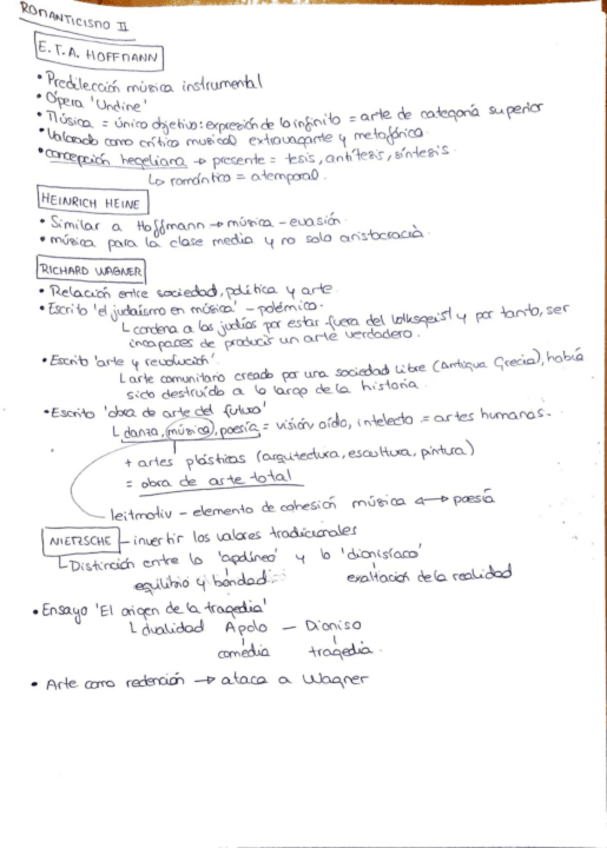 ROMANTICISMO II
E.T.A. HOFFMANN
• Predilección música instrumental
• Ópera 'Undine'
• Música = único objetivo: expresión de lo infinito = arte de categoría superior
• Valorado como crítico musical extravagante y metafórico.
• concepción hegeliana → presente = tesis, antítesis, síntesis.
Lo romántico = atemporal.
HEINRICH HEINE
• Similar a Hoffmann → música - evasión.
• música para la clase media y no solo aristocracia.
RICHARD WAGNER
• Relación entre sociedad, política y arte
• Escrito 'el judaísmo en música' - polémico.
└ condena a los judíos por estar fuera del Volksgeist y por tanto, ser
incapaces de producir un arte verdadero.
• Escrito 'arte y revolución'.
└ arte comunitario creado por una sociedad libre (Antigua Grecia), había
sido destruído a lo largo de la historia.
• Escrito 'obra de arte del futuro'
└ danza, música, poesía = visión oído, intelecto = artes humanas.
+ artes plásticas (arquitectura, escultura, pintura)
= obra de arte total
leitmotiv - elemento de cohesión música ↔ poesía
NIETZSCHE - invertir los valores tradicionales
└ Distinción entre lo 'apolíneo' y lo 'dionisíaco'
equilibrio y bondad. exaltación de la realidad
• Ensayo 'El origen de la tragedia'
└ dualidad Apolo - Dioniso
comedia tragedia.
• Arte como redención → ataca a Wagner